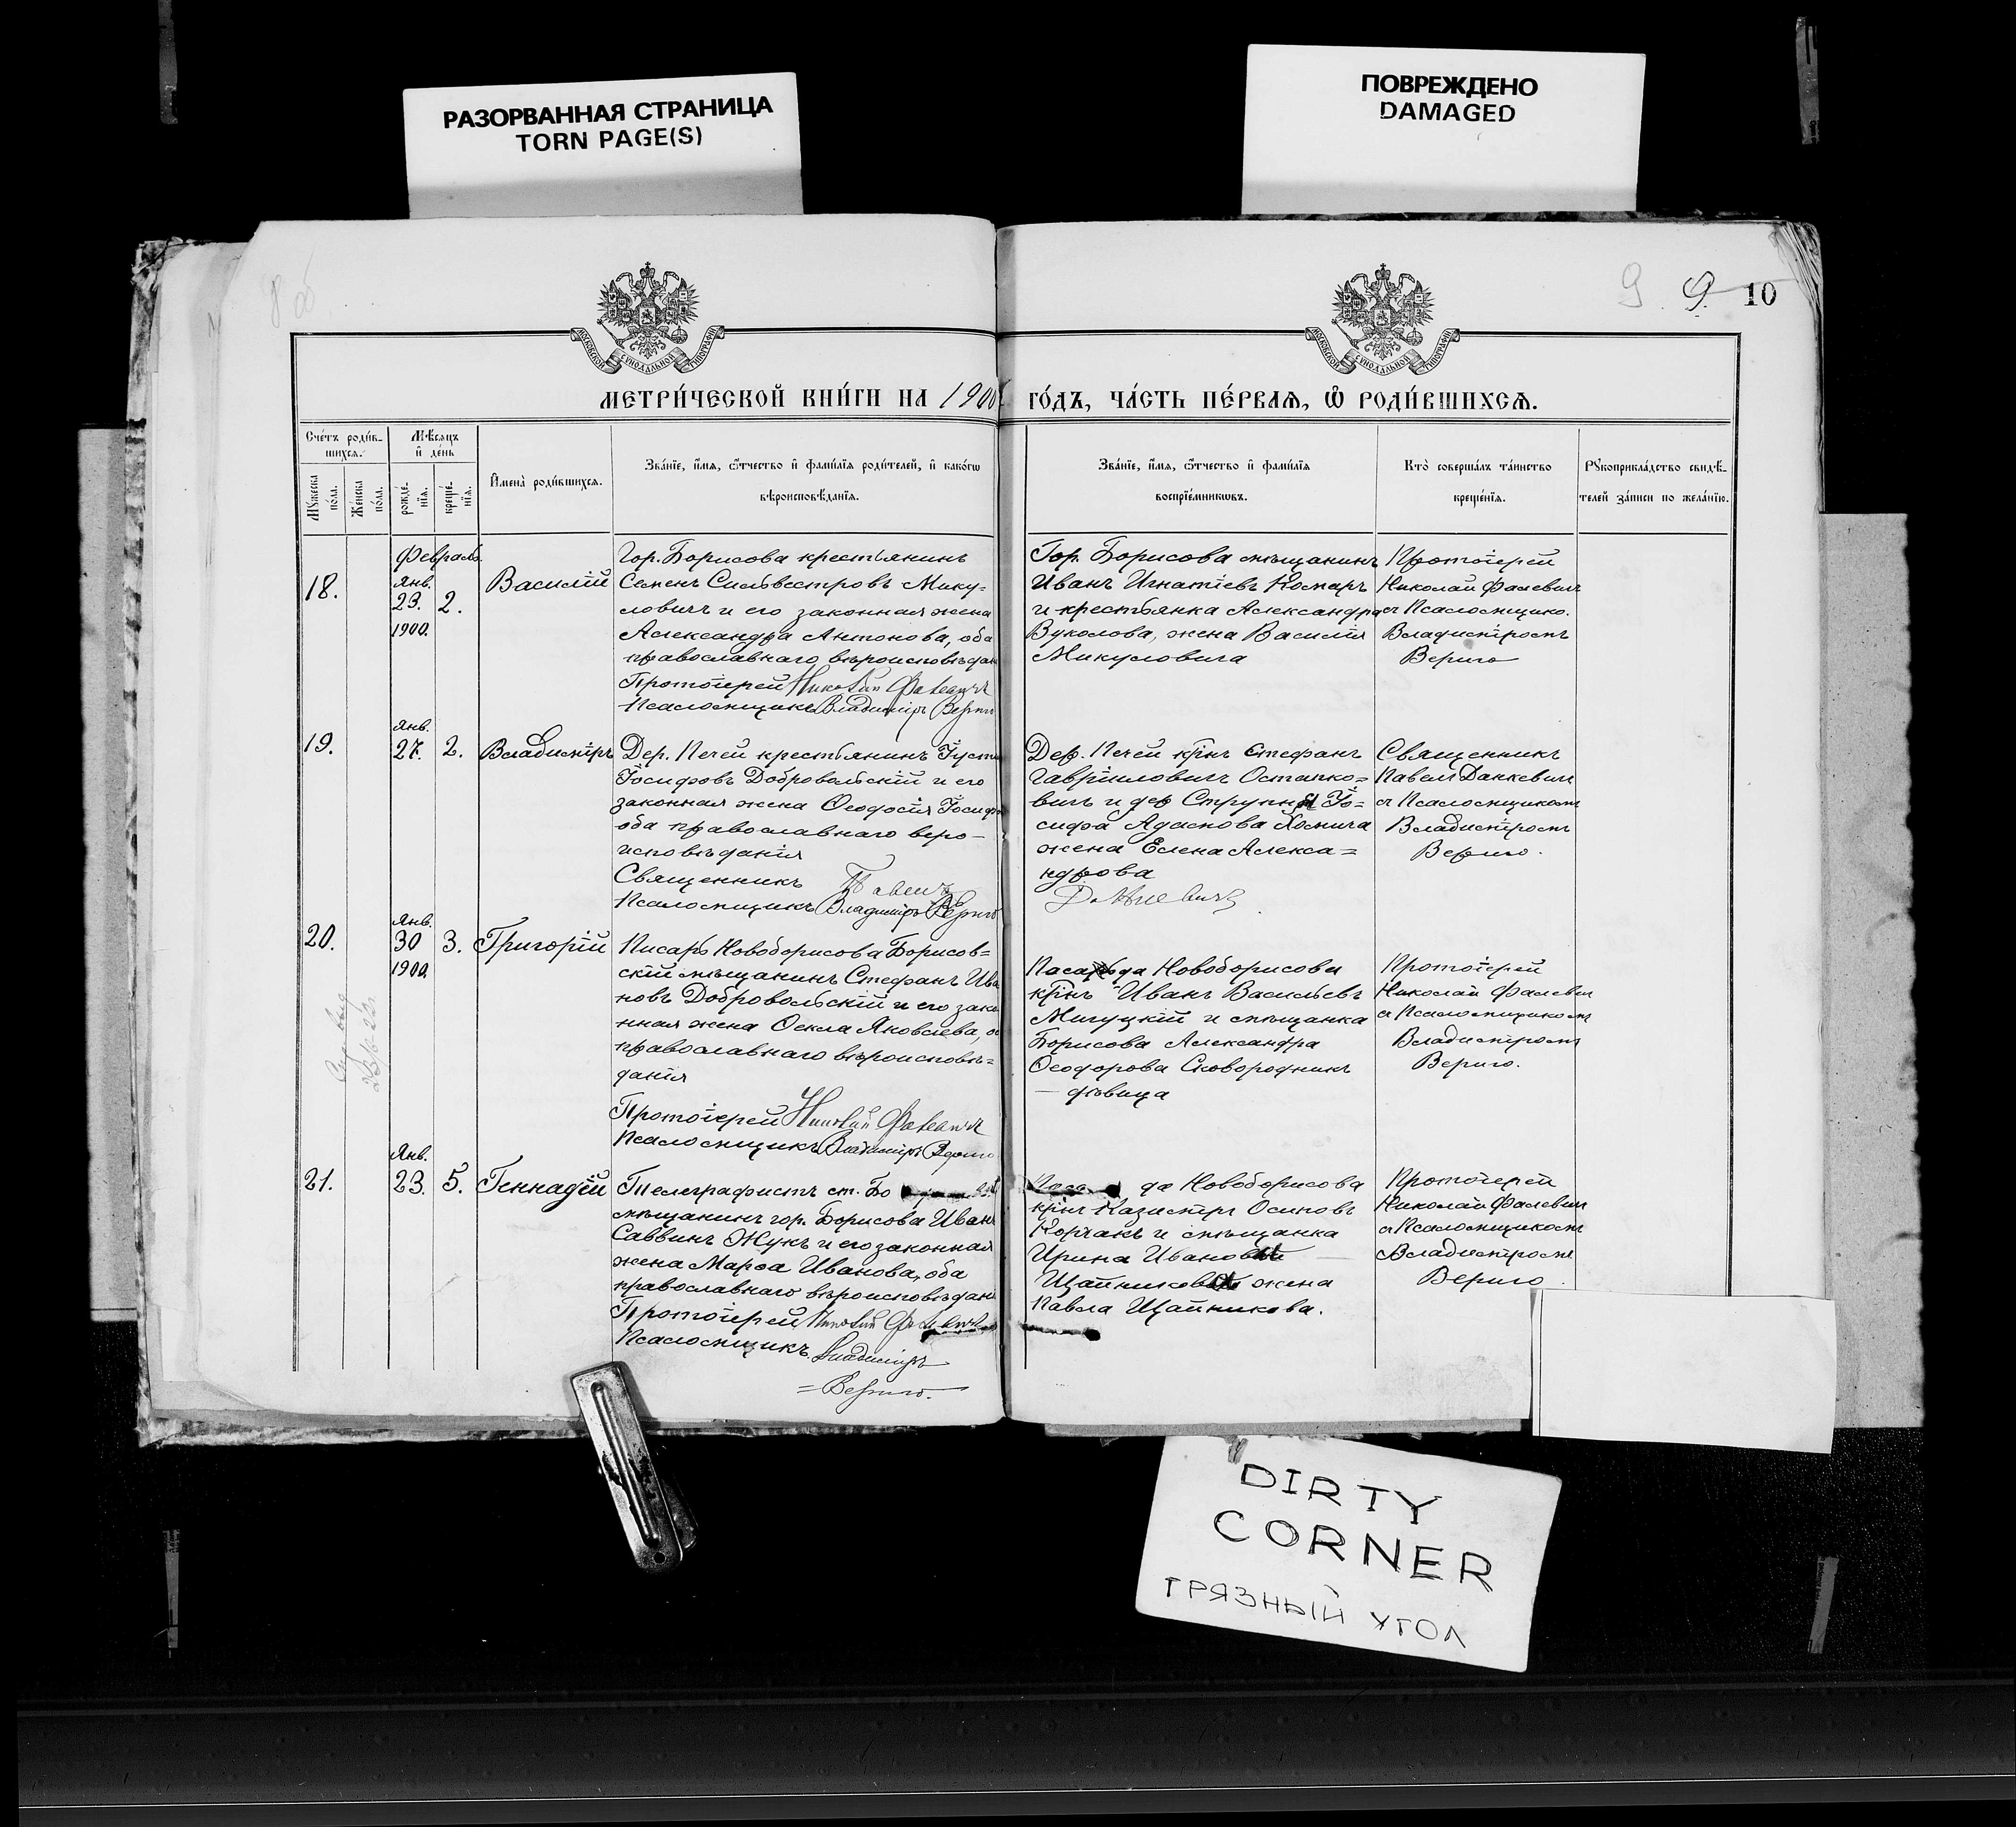 РАЗОРВАННАЯ СТРАНИЦА
TORN PAGE(S)
ПОВРЕЖДЕНО
DAMAGED
8 об
9
9.
10
МОСКОВСКОЙ СѴНОДАЛЬНОЙ ТИПОГРАФІИ
МОСКОВСКОЙ СѴНОДАЛЬНОЙ ТИПОГРАФІИ
МЕТРИ́ЧЕСКОЙ КНИ́ГИ НА 1900
ГО́ДЪ, ЧА́СТЬ ПЕ́РВАЯ, Ѿ РОДИ́ВШИХСѦ.
Сче́тъ роди́в-
шихсѧ.
Мѣ́сѧцъ
и҆ де́нь
Мꙋ́жеска по́ла.
Же́нска по́ла.
рожде́-нїѧ.
креще́-нїѧ.
И҆мена̀ роди́вшихсѧ.
Зва́нїе, и҆́мѧ, ѻ҆́тчество и҆ фами́лїѧ роди́телей, и҆ како́гѡ
вѣроисповѣ́данїѧ.
Зва́нїе, и҆́мѧ, ѻ҆́тчество и҆ фами́лїѧ
воспрїе́мникѡвъ.
Кто̀ соверша́лъ та́инство
креще́нїѧ.
Рꙋкоприкла́дство свидѣ́-
телей за́писи по жела́нїю.
Февраль
18.
Янв.
23.
1900.
2.
Василій
Гор. Борисова крестьянинъ
Семенъ Сильвестровъ Мику-
ловичъ и его законная жена
Александра Антонова, оба
православнаго вѣроисповѣдан
Протоіерей Николай Фалевичъ
Псаломщикъ Владиміръ Вериго
Гор. Борисова мѣщанинъ
Иванъ Игнатіевъ Комаръ
и крестьянка Александра
Вуколова, жена Василія
Микуловича
Протоіерей
Николай Фалевичъ
съ Псаломщико.
Владиміромъ
Верию
19.
Янв.
27.
2.
Владиміръ
Дер. Печей крестьянинъ Іусти
Іосифовъ Добровольскій и его
законная жена Ѳеодосія Іосифо
оба православнаго веро-
исповѣданія
Священникъ Павелъ
Псаломщикъ Владиміръ Верию
Дер. Печей кр҃нъ Стефанъ
Гавріиловичъ Остапко=
вичъ и дер Струпня Іо=
сифа Адамова Хомича
жена Елена Алекса=
ндрова
Данкевичъ
Священникъ
Павелъ Данкевичъ
съ Псаломщикомъ
Владиміромъ
Верию.
20.
Янв.
30
1900.
3.
Григорій
Писарь Новоборисова Борисов=
скій мѣщанинъ Стефанъ Ива
новъ Добровольскій и его зако
нная жена Ѳекла Яковлева, об
православнаго вѣроисповѣ=
данія
Протоіерей Николай Фалевичъ
Псаломщикъ Владиміръ Верию
да Новоборисова
кр҃нъ Иванъ Васильевъ
Мигуцкій и мѣщанка
Борисова Александра
Ѳеодорова Сковородникъ
— дѣвица
Протоіерей
Николай Фалевич
съ Псаломщикомъ
Владиміромъ
Верию.
21.
Янв.
23.
5.
Геннадій
Телеграфистъ ст. Бо
мѣщанинъ гор. Борисова Иванъ
Саввинъ Жукъ и его законная
жена Марѳа Иванова, оба
православнаго вѣроисповѣдан
Протоіерей Николай Фалевичъ
Псаломщикъ Владиміръ
= Верию.
да Новоборисова
кр҃нъ Казиміръ Осиповъ
Корчакъ и мѣщанка
Ирина Иванова
Щанникова жена
Павла Щанникова.
Протоіерей
Николай Фалевичъ
съ Псаломщикомъ
Владиміромъ
Верию.
DIRTY
CORNER
ГРЯЗНЫЙ УГОЛ